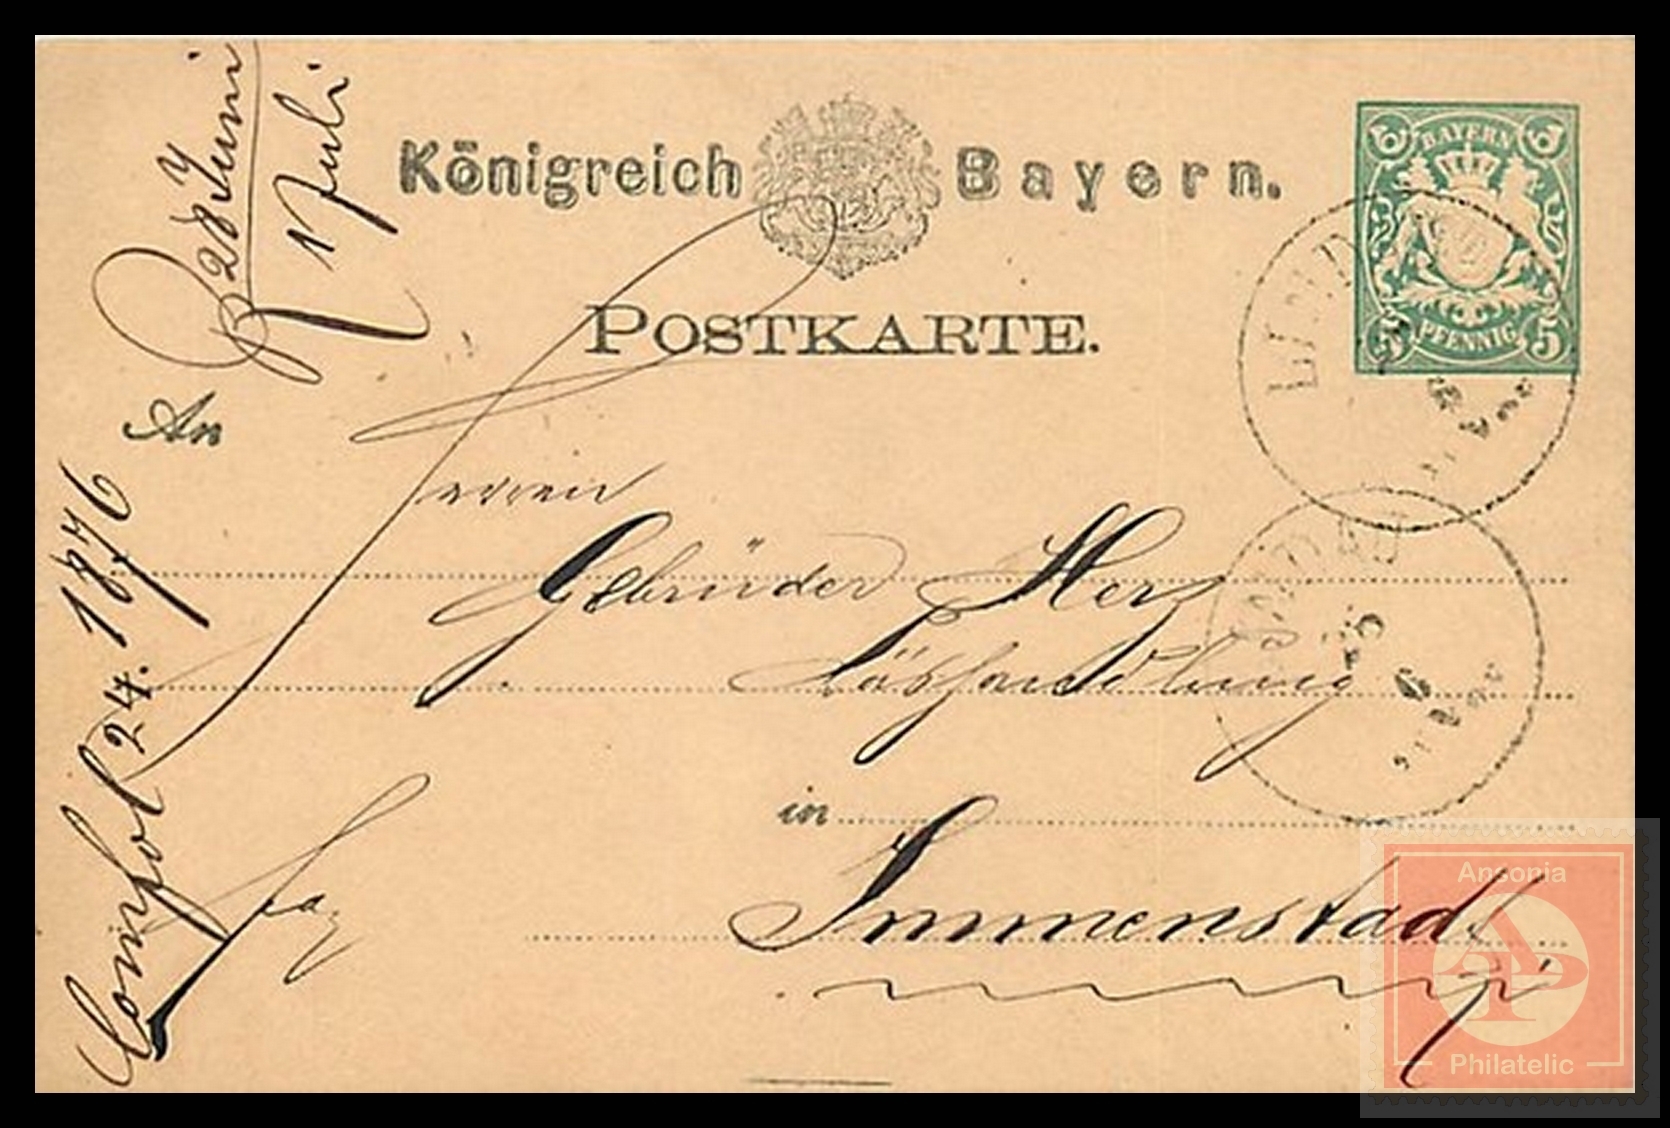 Königreich Bayern.
BAYERN
5 5
5 PFENNIG 5
POSTKARTE.
An
Herren
Gebrüder Herz
Käshandlung
in
Immenstadt
24. 1876
B 28 Juni
1 Juli
Ansonia
Philatelic